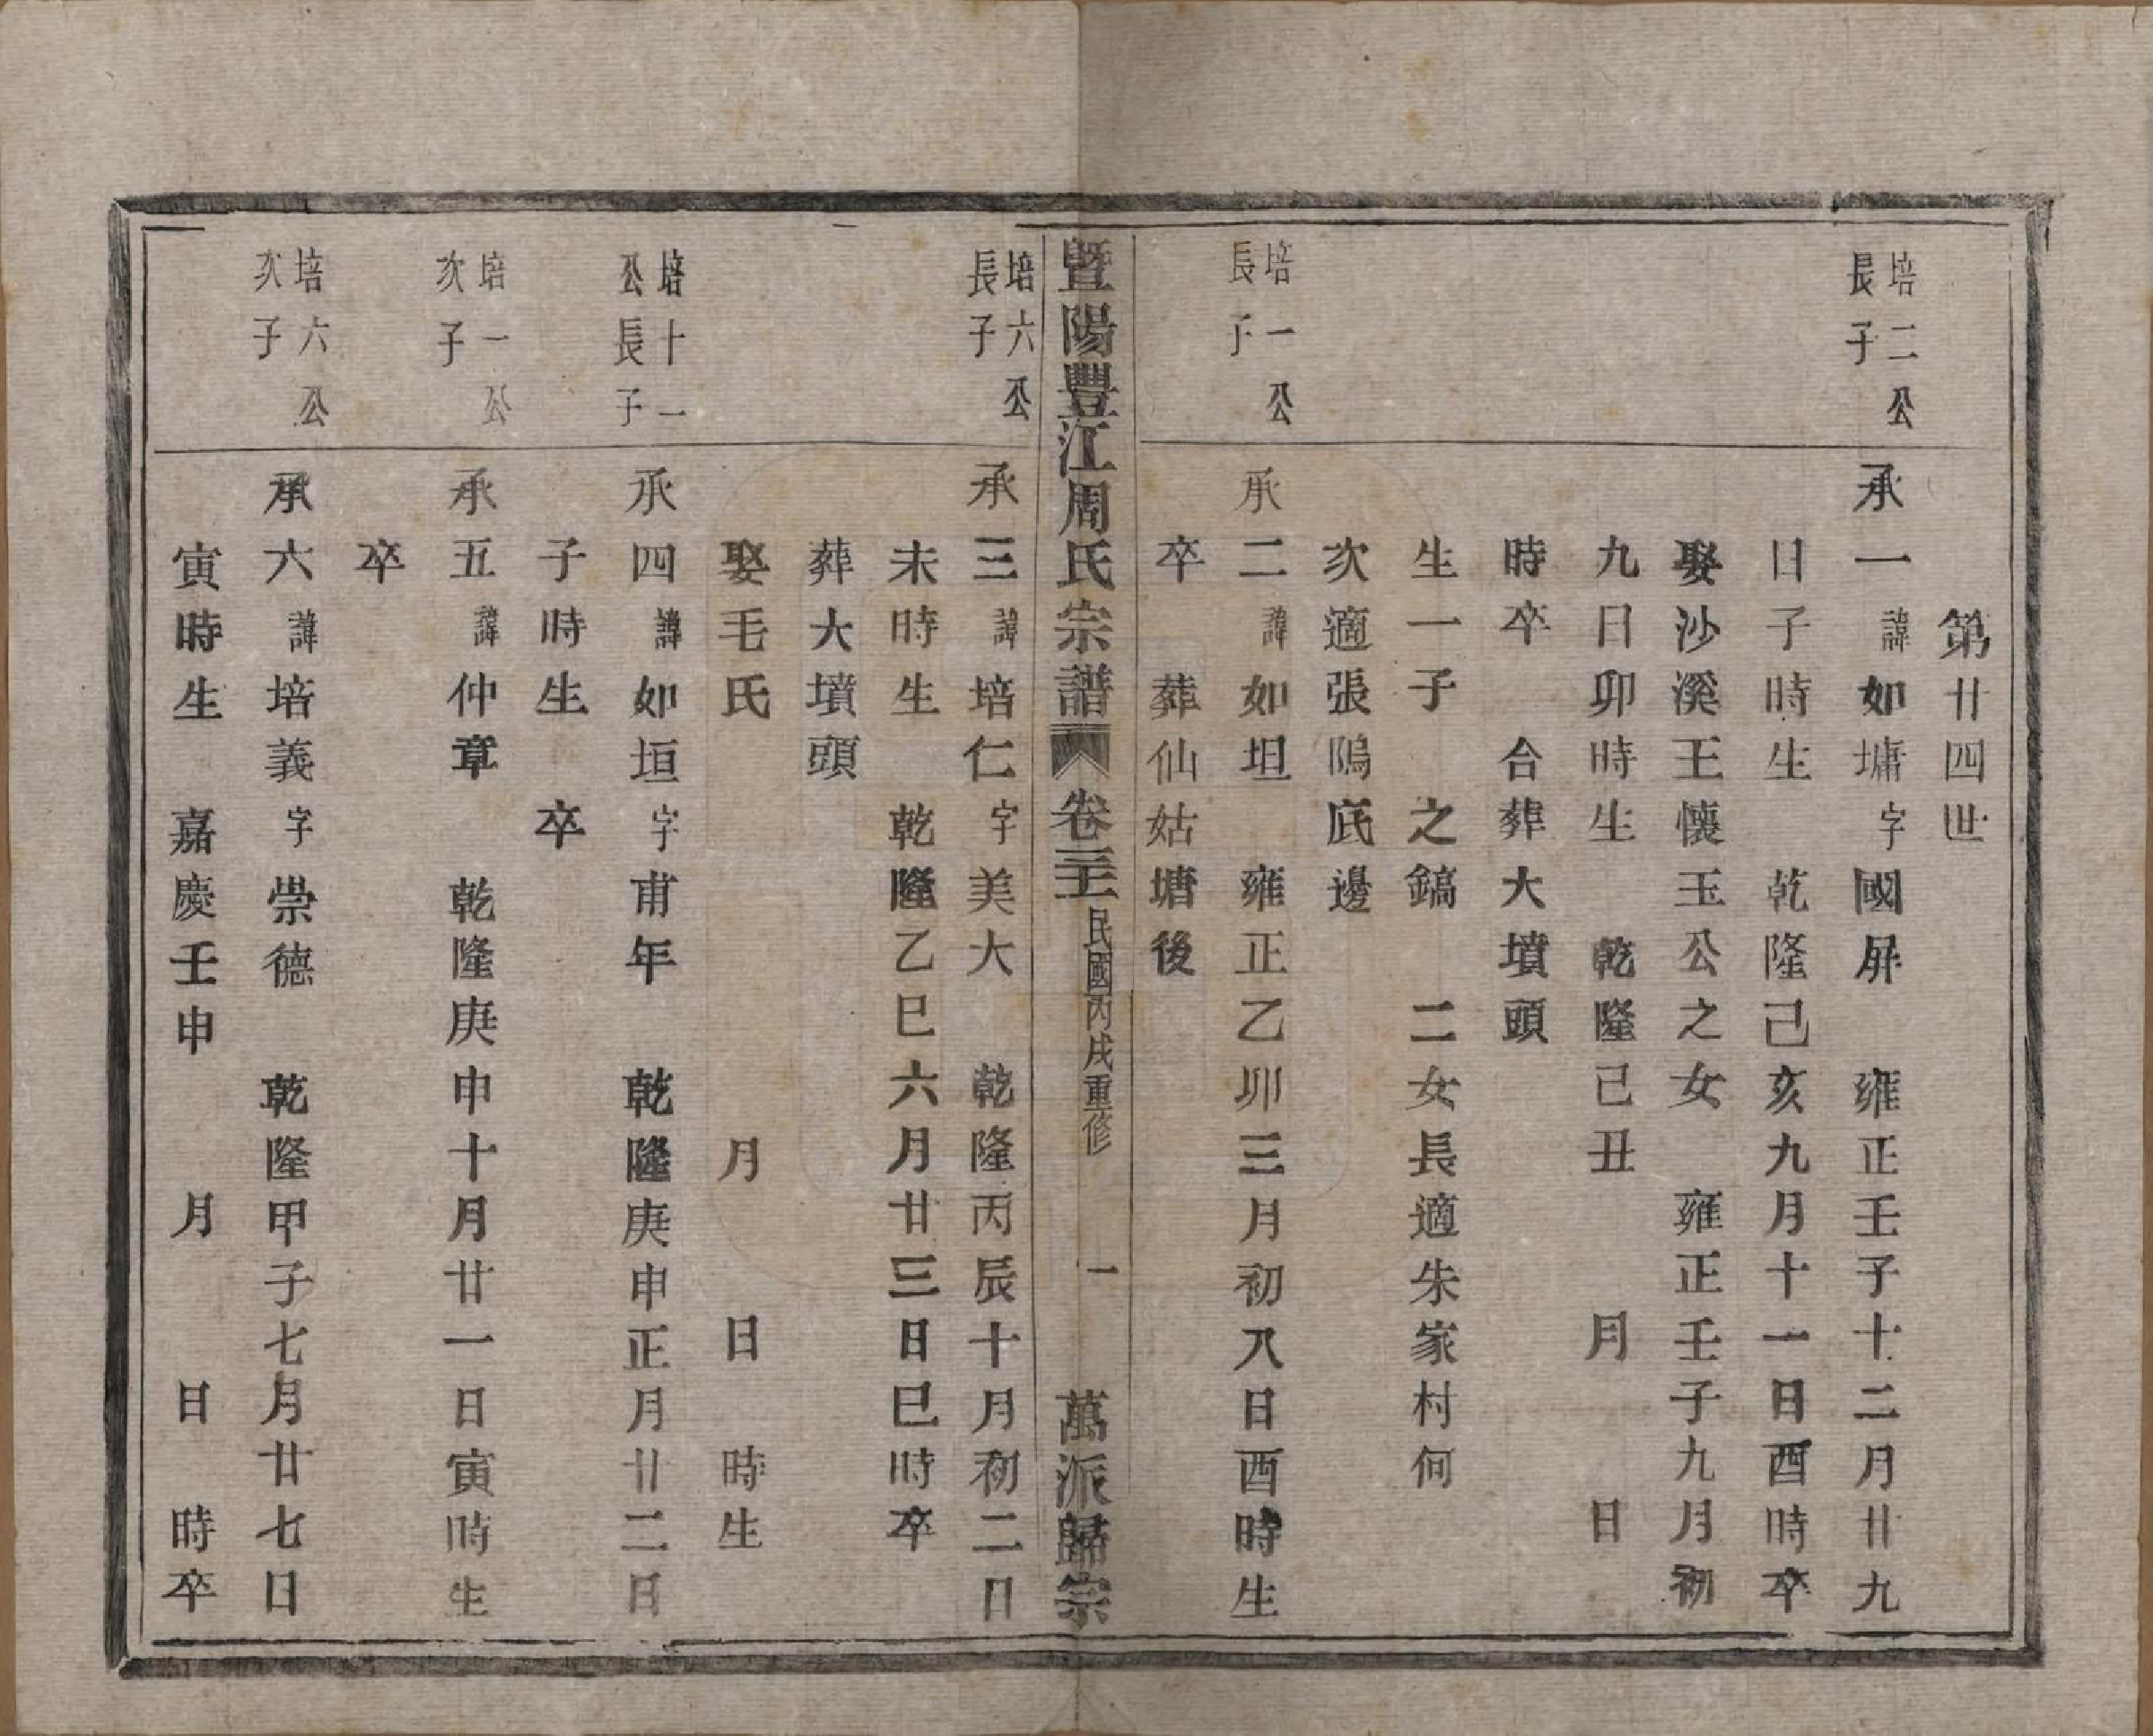 第廿四世
培二公
長子
承一諱如墉字國屏　雍正壬子十二月廿九
日子時生　乾隆己亥九月十一日酉時卒
娶沙溪王懷玉公之女　雍正壬子九月初
九日卯時生　乾隆己丑　月　日
時卒　合葬大墳頭
生一子　之鎬　二女長適朱家村何
次適張隖底邊
培一公
長子
承二諱如坦　雍正乙卯三月初八日酉時生
卒　葬仙姑塘後
暨陽豐江周氏宗譜　卷三　民國丙戌重修　一　萬派歸宗
培六公
長子
承三諱培仁字美大　乾隆丙辰十月初二日
未時生　乾隆乙巳六月廿三日巳時卒
葬大墳頭
娶毛氏　月　日　時生
培十一
公長子
承四諱如垣字甫年　乾隆庚申正月廿二日
子時生　卒
培一公
次子
承五諱仲章　乾隆庚申十月廿一日寅時生
卒
培六公
次子
承六諱培義字崇德　乾隆甲子七月廿七日
寅時生　嘉慶壬申　月　日　時卒